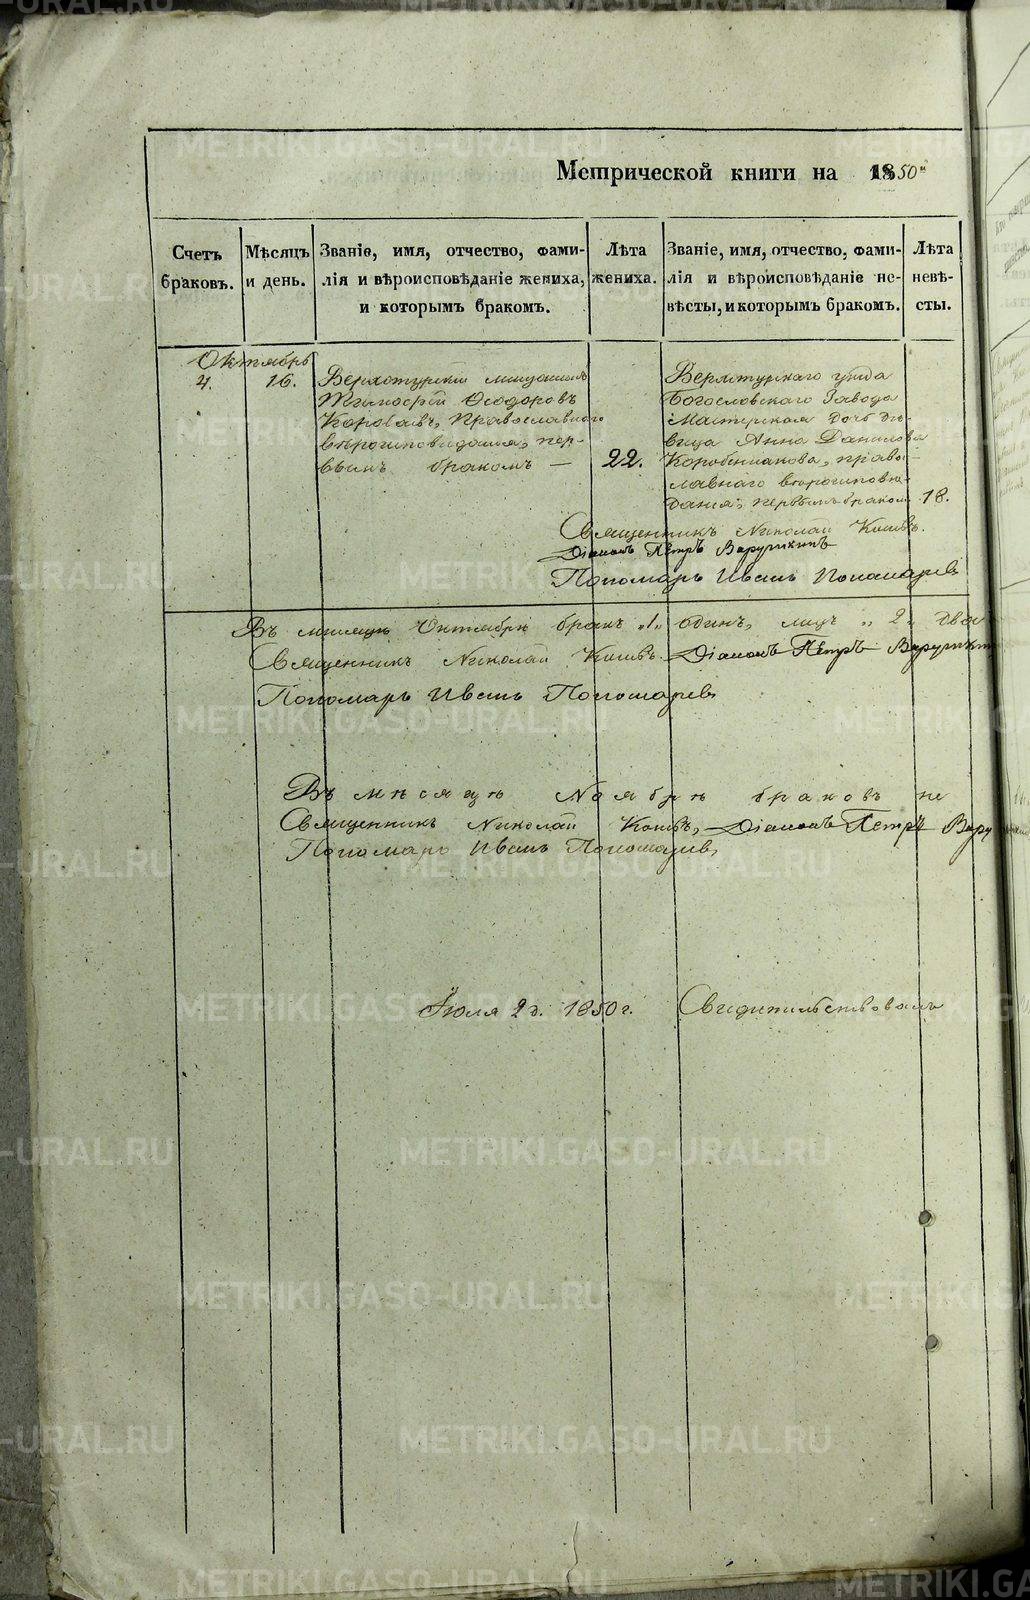 Метрической книги на 1850
Счетъ браковъ.
Мѣсяцъ и день.
Званіе, имя, отчество, фами-
лія и вѣроисповѣданіе жениха,
и которымъ бракомъ.
Лѣта жениха.
Званіе, имя, отчество, фами-
лія и вѣроисповѣданіе не-
вѣсты, и которымъ бракомъ.
Лѣта невѣ-
сты.
Октябрь
4. 16.
Верхотурскій мещанинъ
Тимофей Ѳеодоровъ
Православнаго
вѣроисповѣданія, пер-
вымъ бракомъ —
22.
Верхотурскаго уѣзда
Богословскаго Завода
Мастерская дочь дѣ-
вица Анна Данилова
право-
славнаго вѣроисповѣ-
данія, первымъ бракомъ 18.
Священникъ Николай
Діаконъ Петръ
Пономарь Иванъ Пономаревъ
Въ мѣсяцѣ Октябрѣ бракъ „1„ одинъ, лицъ „2„ два
Священникъ Николай Діаконъ Петръ
Пономарь Иванъ Пономаревъ
Въ мѣсяцѣ Ноябрѣ браковъ не
Священникъ Николай Діаконъ Петръ
Пономарь Иванъ Пономаревъ
Іюля 2 д. 1850 г. Свидѣтельствовалъ
METRIKI.GASO-URAL.RU